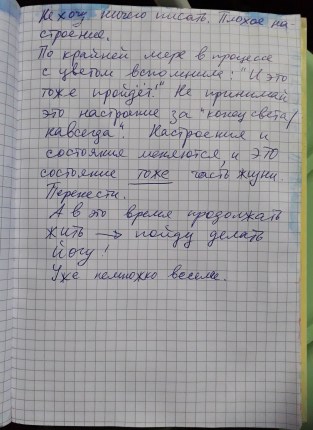 Не хочу ничего писать. Плохое на-
строение.
По крайней мере в процессе
с цветом вспомнила: "И это
тоже пройдёт!" Не принимай
это настроение за "конец света/
навсегда". Настроения и
состояния меняются, и ЭТО
состояние тоже часть жизни.
Перенести.
А в это время продолжать
жить → пойду делать
йогу!
Уже немножко веселее.